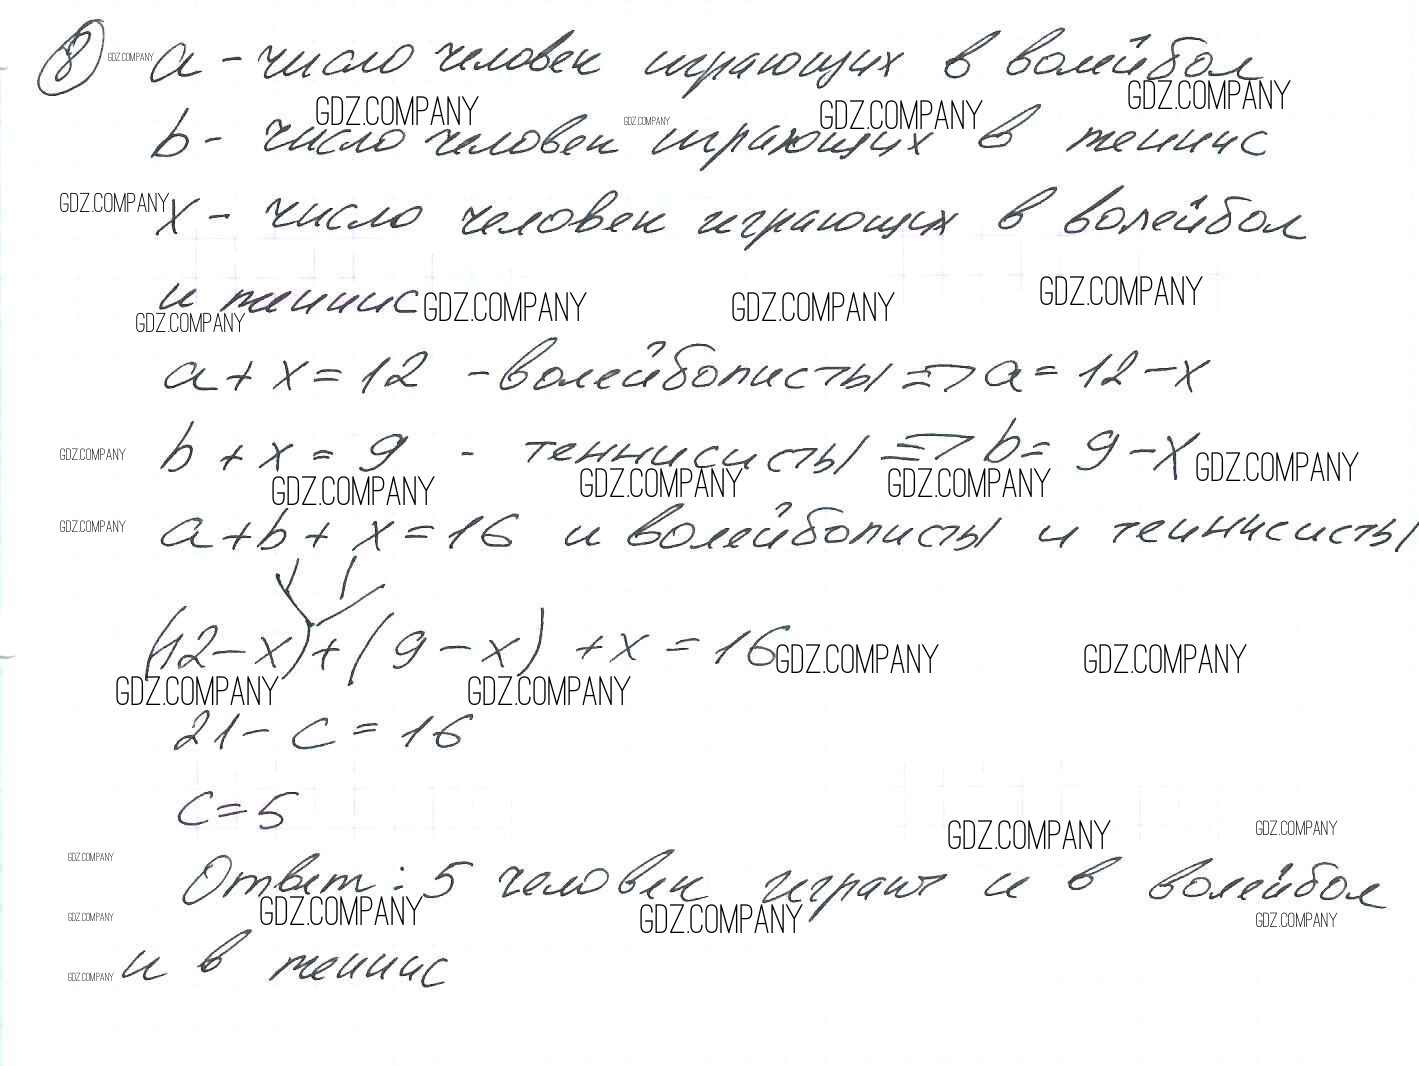 8 GDZ.COMPANY a - число человек играющих в волейбол
GDZ.COMPANY GDZ.COMPANY GDZ.COMPANY GDZ.COMPANY
b - число человек играющих в теннис
GDZ.COMPANY x - число человек играющих в волейбол
и теннис GDZ.COMPANY GDZ.COMPANY GDZ.COMPANY
GDZ.COMPANY
a + x = 12 - волейболисты => a = 12 - x
GDZ.COMPANY b + x = 9 - теннисисты => b = 9 - x GDZ.COMPANY
GDZ.COMPANY GDZ.COMPANY GDZ.COMPANY
GDZ.COMPANY a + b + x = 16 и волейболисты и теннисисты
(12 - x) + (9 - x) + x = 16 GDZ.COMPANY GDZ.COMPANY
GDZ.COMPANY GDZ.COMPANY
21 - c = 16
c = 5
GDZ.COMPANY GDZ.COMPANY
GDZ.COMPANY Ответ: 5 человек играют и в волейбол
GDZ.COMPANY GDZ.COMPANY GDZ.COMPANY GDZ.COMPANY
GDZ.COMPANY и в теннис